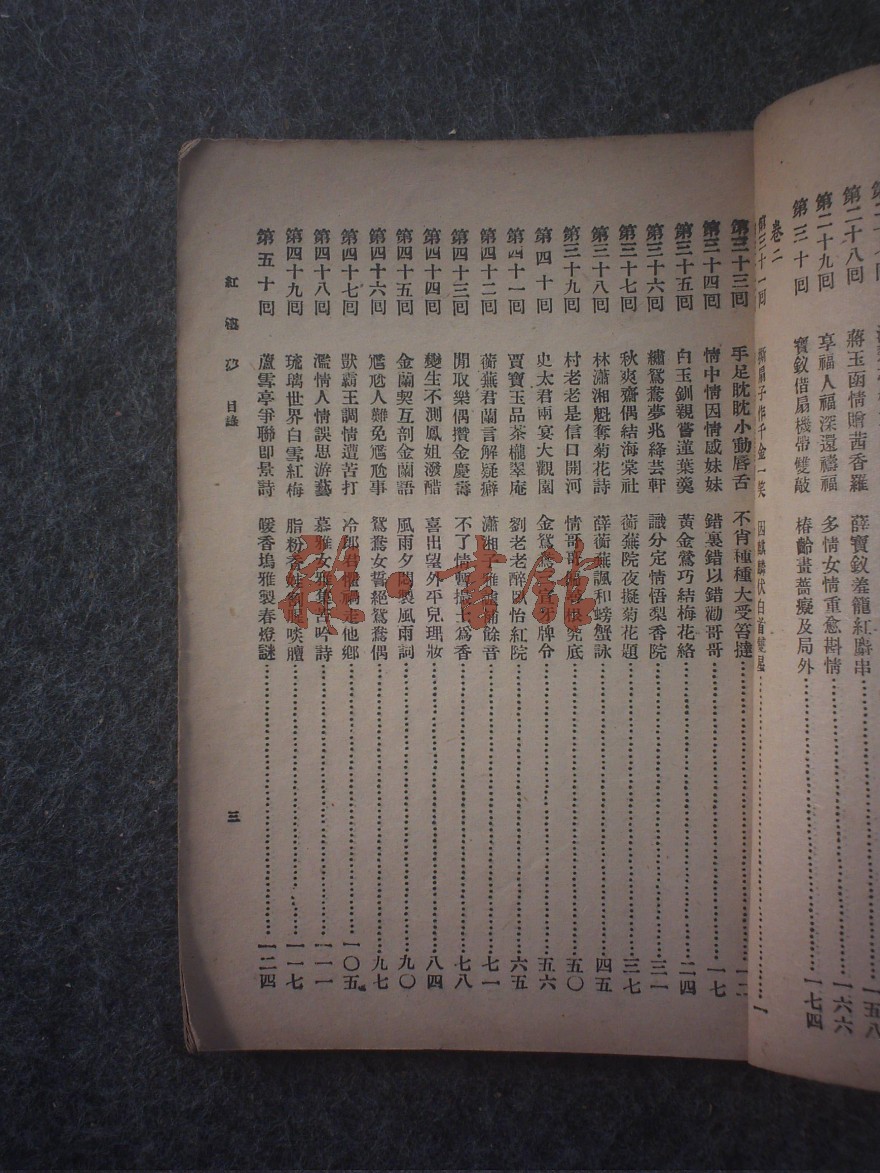 第二十八回 蔣玉函情贈茜香羅 薛寶釵羞籠紅麝串 一五八
第二十九回 享福人福深還禱福 多情女情重愈斟情 一六六
第三十回 寶釵借扇機帶雙敲 椿齡畫薔癡及局外 一七四
卷二
第三十一回 撕扇子作千金一笑 因麒麟伏白首雙星 一
第三十三回 手足眈眈小動唇舌 不肖種種大受笞撻 一二
第三十四回 情中情因情感妹妹 錯裏錯以錯勸哥哥 一七
第三十五回 白玉釧親嘗蓮葉羹 黃金鶯巧結梅花絡 二四
第三十六回 繡鴛鴦夢兆絳芸軒 識分定情悟梨香院 三一
第三十七回 秋爽齋偶結海棠社 蘅蕪院夜擬菊花題 三七
第三十八回 林瀟湘魁奪菊花詩 薛蘅蕪諷和螃蟹詠 四五
第三十九回 村老老是信口開河 情哥哥 根究底 五〇
第四十回 史太君兩宴大觀園 金鴛鴦三宣牙牌令 五六
第四十一回 賈寶玉品茶櫳翠庵 劉老老醉臥怡紅院 六五
第四十二回 蘅蕪君蘭言解疑癖 瀟湘子雅謔補餘音 七一
第四十三回 閒取樂偶攢金慶壽 不了情暫撮土爲香 七八
第四十四回 變生不測鳳姐潑醋 喜出望外平兒理妝 八四
第四十五回 金蘭契互剖金蘭語 風雨夕悶製風雨詞 九〇
第四十六回 尷尬人難免尷尬事 鴛鴦女誓絕鴛鴦偶 九七
第四十七回 獃霸王調情遭苦打 冷郎君懼禍走他鄉 一〇五
第四十八回 濫情人情誤思游藝 慕雅女雅集苦吟詩 一一一
第四十九回 琉璃世界白雪紅梅 脂粉香娃割腥啖膻 一一七
第五十回 蘆雪亭爭聯即景詩 暖香塢雅製春燈謎 一二四
紅樓夢 目錄
三
書館